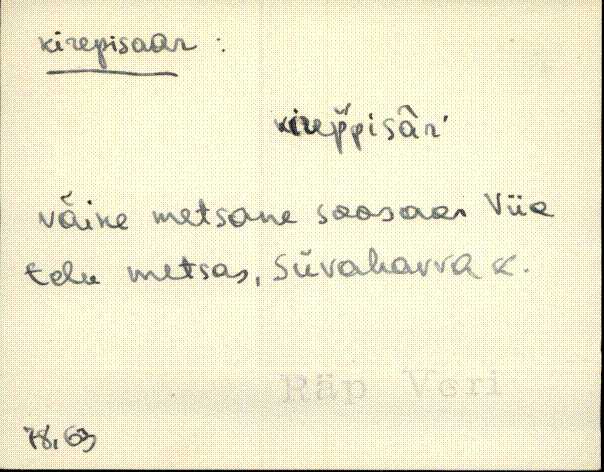 kirepisaar :
kireppisâr'
väike metsane soosaar Viia
talu metsas, Süvahavva k.
Räp Veri
78, 63